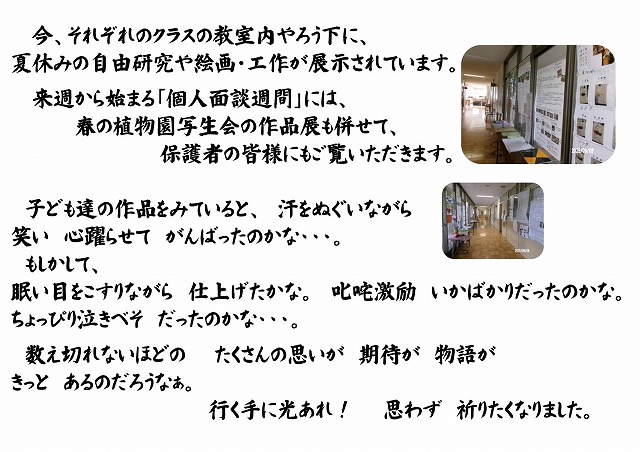 今、それぞれのクラスの教室内やろう下に、
夏休みの自由研究や絵画・工作が展示されています。
来週から始まる「個人面談週間」には、
春の植物園写生会の作品展も併せて、
保護者の皆様にもご覧いただきます。
子ども達の作品をみていると、 汗をぬぐいながら
笑い 心躍らせて がんばったのかな・・・。
もしかして、
眠い目をこすりながら 仕上げたかな。 叱咤激励 いかばかりだったのかな。
ちょっぴり泣きべそ だったのかな・・・。
数え切れないほどの たくさんの思いが 期待が 物語が
きっと あるのだろうなぁ。
行く手に光あれ！ 思わず 祈りたくなりました。